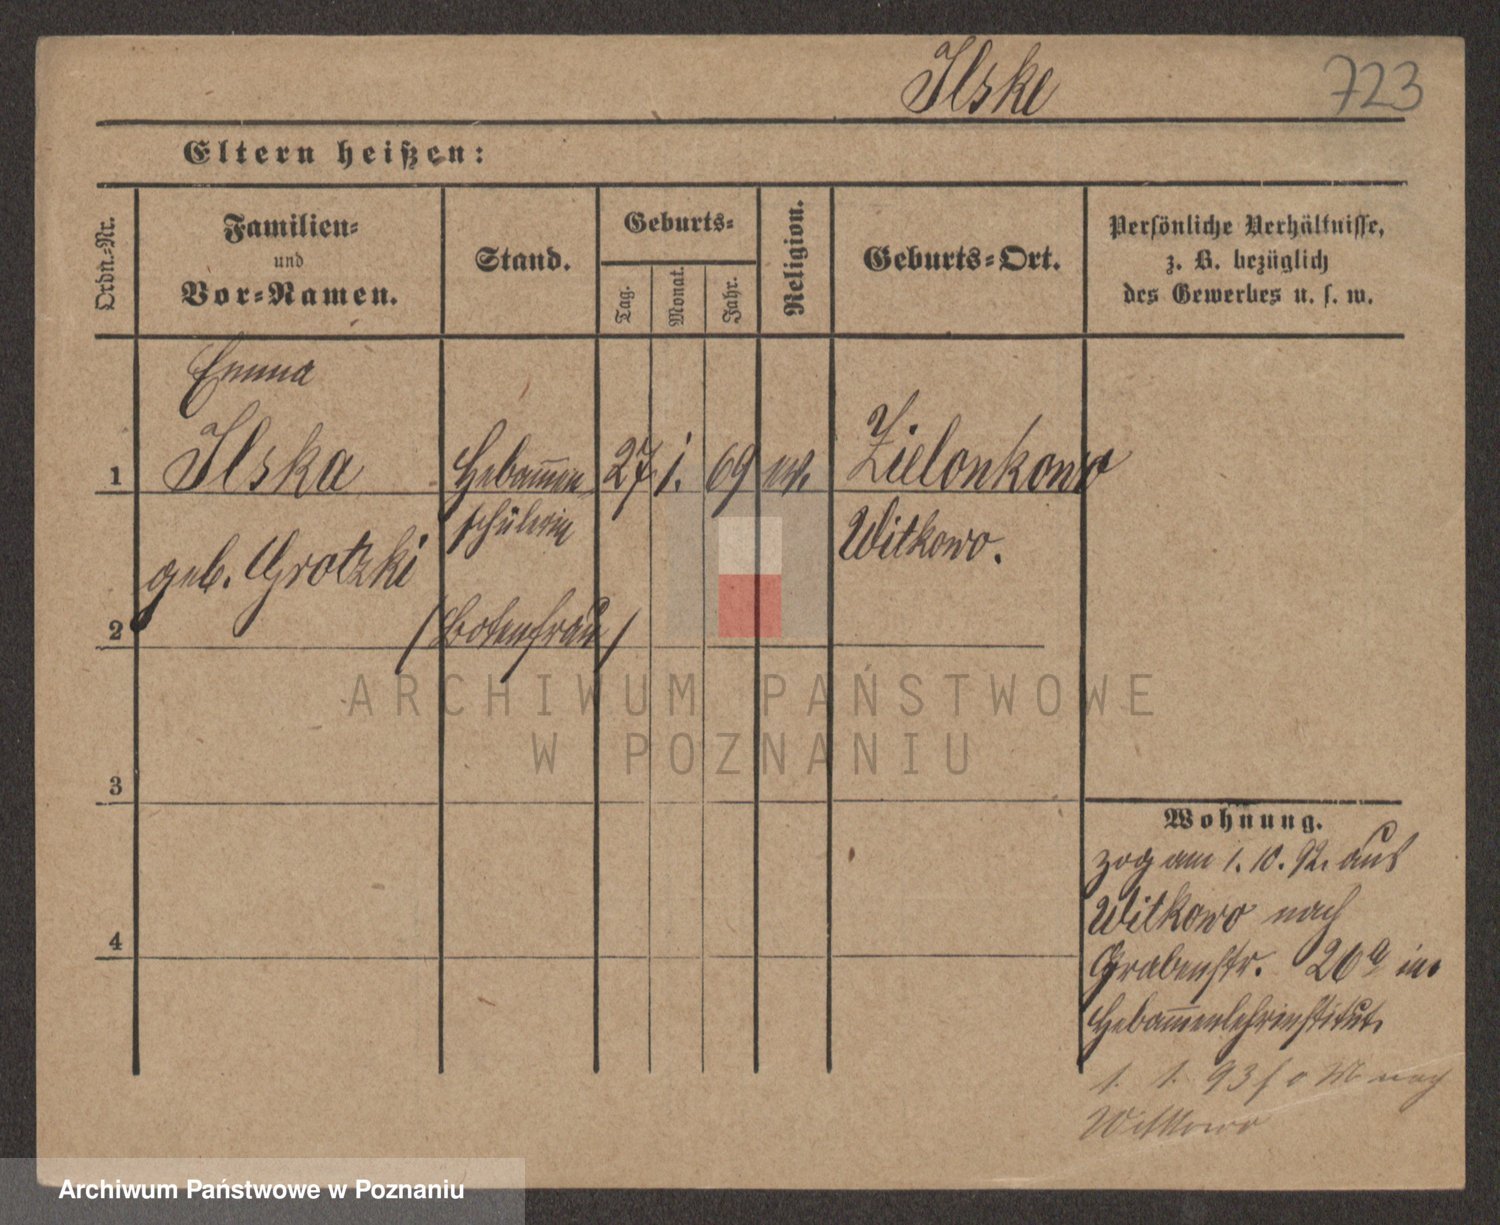 Ilske 723
Eltern heißen:
Ordn.-Nr.
Familien-
und
Vor-Namen.
Stand.
Geburts-
Tag.
Monat.
Jahr.
Religion.
Geburts-Ort.
Persönliche Verhältnisse,
z. B. bezüglich
des Gewerbes u. s. w.
Emma
1 Ilska Hebam̅en- 27 1. 69 ev. Zielonkowo
schülerin Witkowo.
geb. Grotzki
2 (Botenfrau)
ARCHIWUM PAŃSTWOWE
W POZNANIU
3
Wohnung.
zog am 1. 10. 92. aus
Witkowo nach
4
Grabenstr. 26a ins
Hebam̅enlehrinstitut.
1. 1. 93 nach
Witkowo
Archiwum Państwowe w Poznaniu